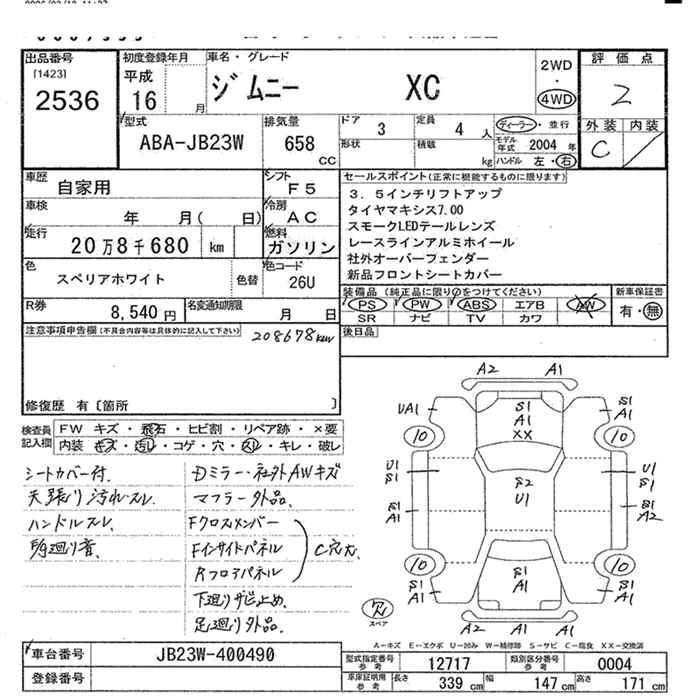 出品番号
[1423]
2536
初度登録年月
平成
16 月
車名・グレード
ジムニー XC
2WD
・
4WD
評価点
2
外装 内装
C
型式
ABA-JB23W
排気量
658
CC
ドア
3
定員
4 人
形状
積載
kg
ディーラー・並行
モデル年式 2004 年
ハンドル 左・右
車歴
自家用
シフト
F5
車検
年 月( 日)
冷房
AC
走行
20万8千680 km
燃料
ガソリン
色
スペリアホワイト
色替
色コード
26U
R券
8,540 円
名変通知期限
月 日
セールスポイント(正常に機能するものに限ります)
3.5インチリフトアップ
タイヤマキシス7.00
スモークLEDテールレンズ
レースラインアルミホイール
社外オーバーフェンダー
新品フロントシートカバー
装備品(純正品に限り○をつけてください)
PS PW ABS エアB AW
SR ナビ TV カワ
新車保証書
有・無
後日品
注意事項申告欄(不具合内容等は具体的に記入して下さい)
208678km
修復歴 有〔箇所 〕
検査員記入欄
FW キズ・飛石・ヒビ割・リペア跡・×要
内装・キズ・汚れ・コゲ・穴・スレ・キレ・破レ
シートカバー付.
天張り汚れスレ
ハンドルスレ.
Dミラー・社外AWキズ
マフラー外品.
Fクロスメンバー
Fインサイドパネル
Rフロアパネル
C穴大
下廻りサビ止め.
足廻り外品.
A2 A1
UA1
S1
A1
XX
S1
A1
10
10
U1
S1
S2
U1
U1
S1
S1
A1
S1
A2
10
10
S1
A1
S1
A1
S1
A1
A1 A1
スペア
A-キズ E-エクボ U-凹み W-補修跡 S-サビ C-腐食 XX-交換済
車台番号
JB23W-400490
登録番号
型式指定番号
参考
12717
類別区分番号
参考
0004
車庫証明用
参考
長さ 339 cm
幅 147 cm
高さ 171 cm